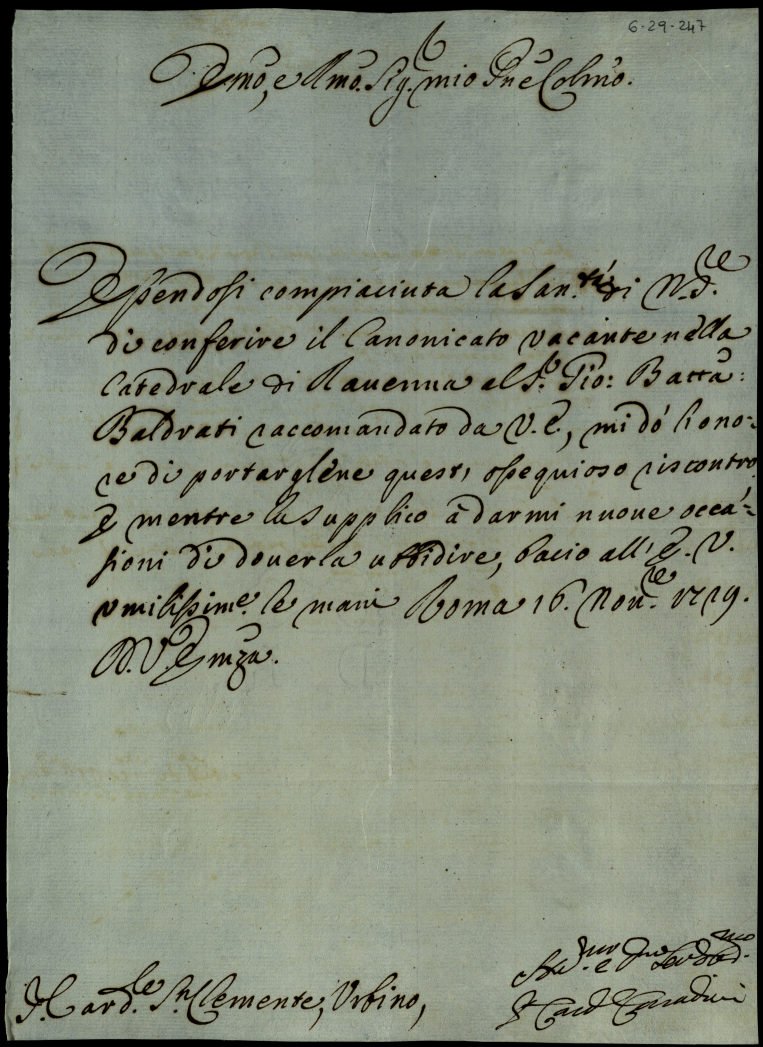 6-29-247
Emo, e Rmo. Sig.r mio Pne Colmo.
Essendosi compiaciuta la San.tà di N.S.re
di conferire il Canonicato vacante nella
Catedrale di Rauenna al S.r Gio: Batta:
Baldrati raccomandato da V. E., mi dó l'ono=
re di portarglene quest, ossequioso riscontro,
E mentre la supplico à darmi nuoue occa=
sioni di douerla ubbidire, bacio all' E. V.
vmilissime. le mani Roma 16. Nou.re 1719.
D. V. Emza.
S. Card.le Sn Clemente, Vrbino,
e
Card